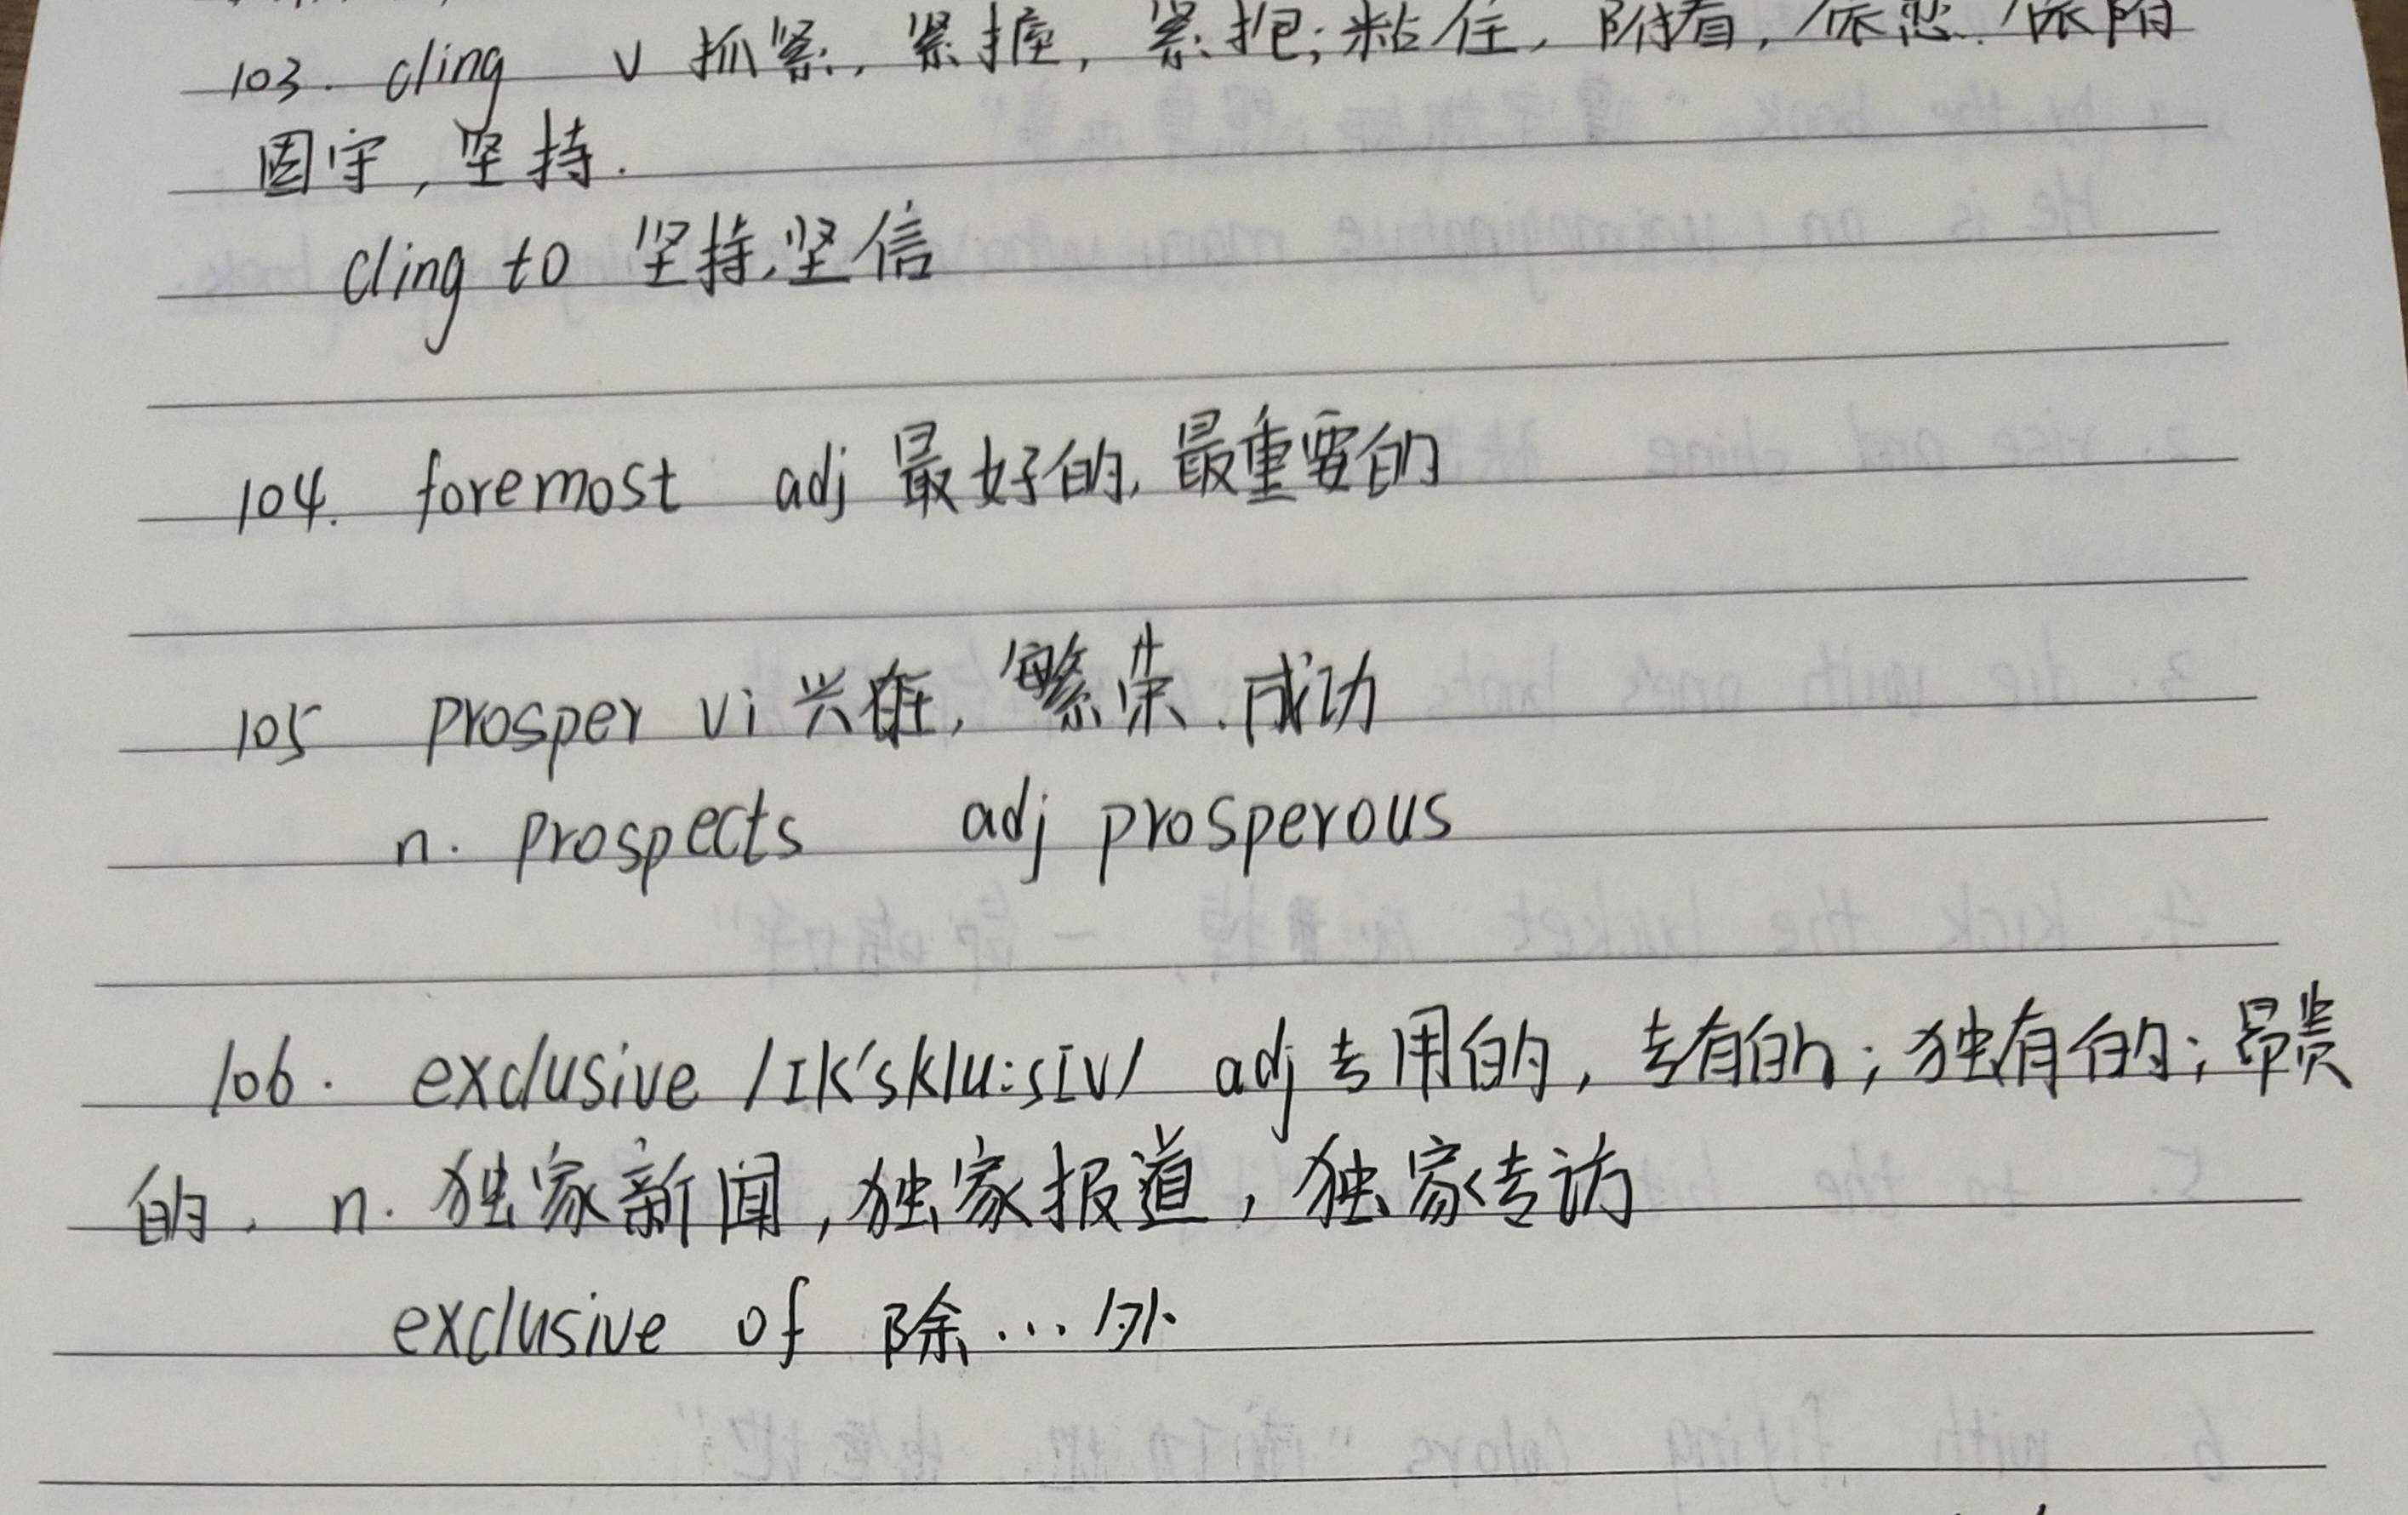 103. cling v 抓紧, 紧握, 紧抱; 粘住, 附着, 依恋. 依附
固守, 坚持.
cling to 坚持, 坚信
104. foremost adj 最好的, 最重要的
105 prosper vi 兴旺, 繁荣. 成功
n. prospects adj prosperous
106. exclusive /Ik'sklu:sIv/ adj 专用的, 专有的; 独有的; 昂贵
的. n. 独家新闻, 独家报道, 独家专访
exclusive of 除...外